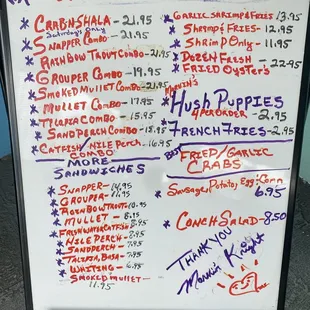 * CRABN-SHALA - 21.95
Saturdays Only
* SNAPPER COMBO - 21.95
* RAINBOW TROUT COMBO - 21.95
* GROUPER COMBO - 19.95
* SMOKED MULLET COMBO - 21.95
* MULLET COMBO - 17.95
* TILAPIA COMBO - 15.95
* SAND PERCH COMBO - 15.95
* CATFISH NILE PERCH - 16.95
COMBO
MORE
SANDWICHES
* SNAPPER - 14.95
* GROUPER - 11.95
* RAINBOW TROUT - 10.95
* MULLET - 8.95
* FRESHWATER CATFISH - 8.95
* NILE PERCH - 8.95
* SANDPERCH - 7.95
* TALIPIA, BASA - 7.95
* WHITING - 6.95
* SMOKED MULLET -
11.95
* GARLIC SHRIMP & FRIES 13.95
* SHRIMP & FRIES - 12.95
* SHRIMP ONLY - 11.95
* DOZEN FRESH - 22.95
FRIED OYSTERS
MARVIN'S
* HUSH PUPPIES
4 PER ORDER - 2.95
* FRENCH FRIES - 2.95
BEST FRIED/GARLIC
CRABS
* SAUSAGE, POTATO, EGG: CORN
6.95
* CONCH SALAD - 8.50
THANK YOU
Marvin Knight